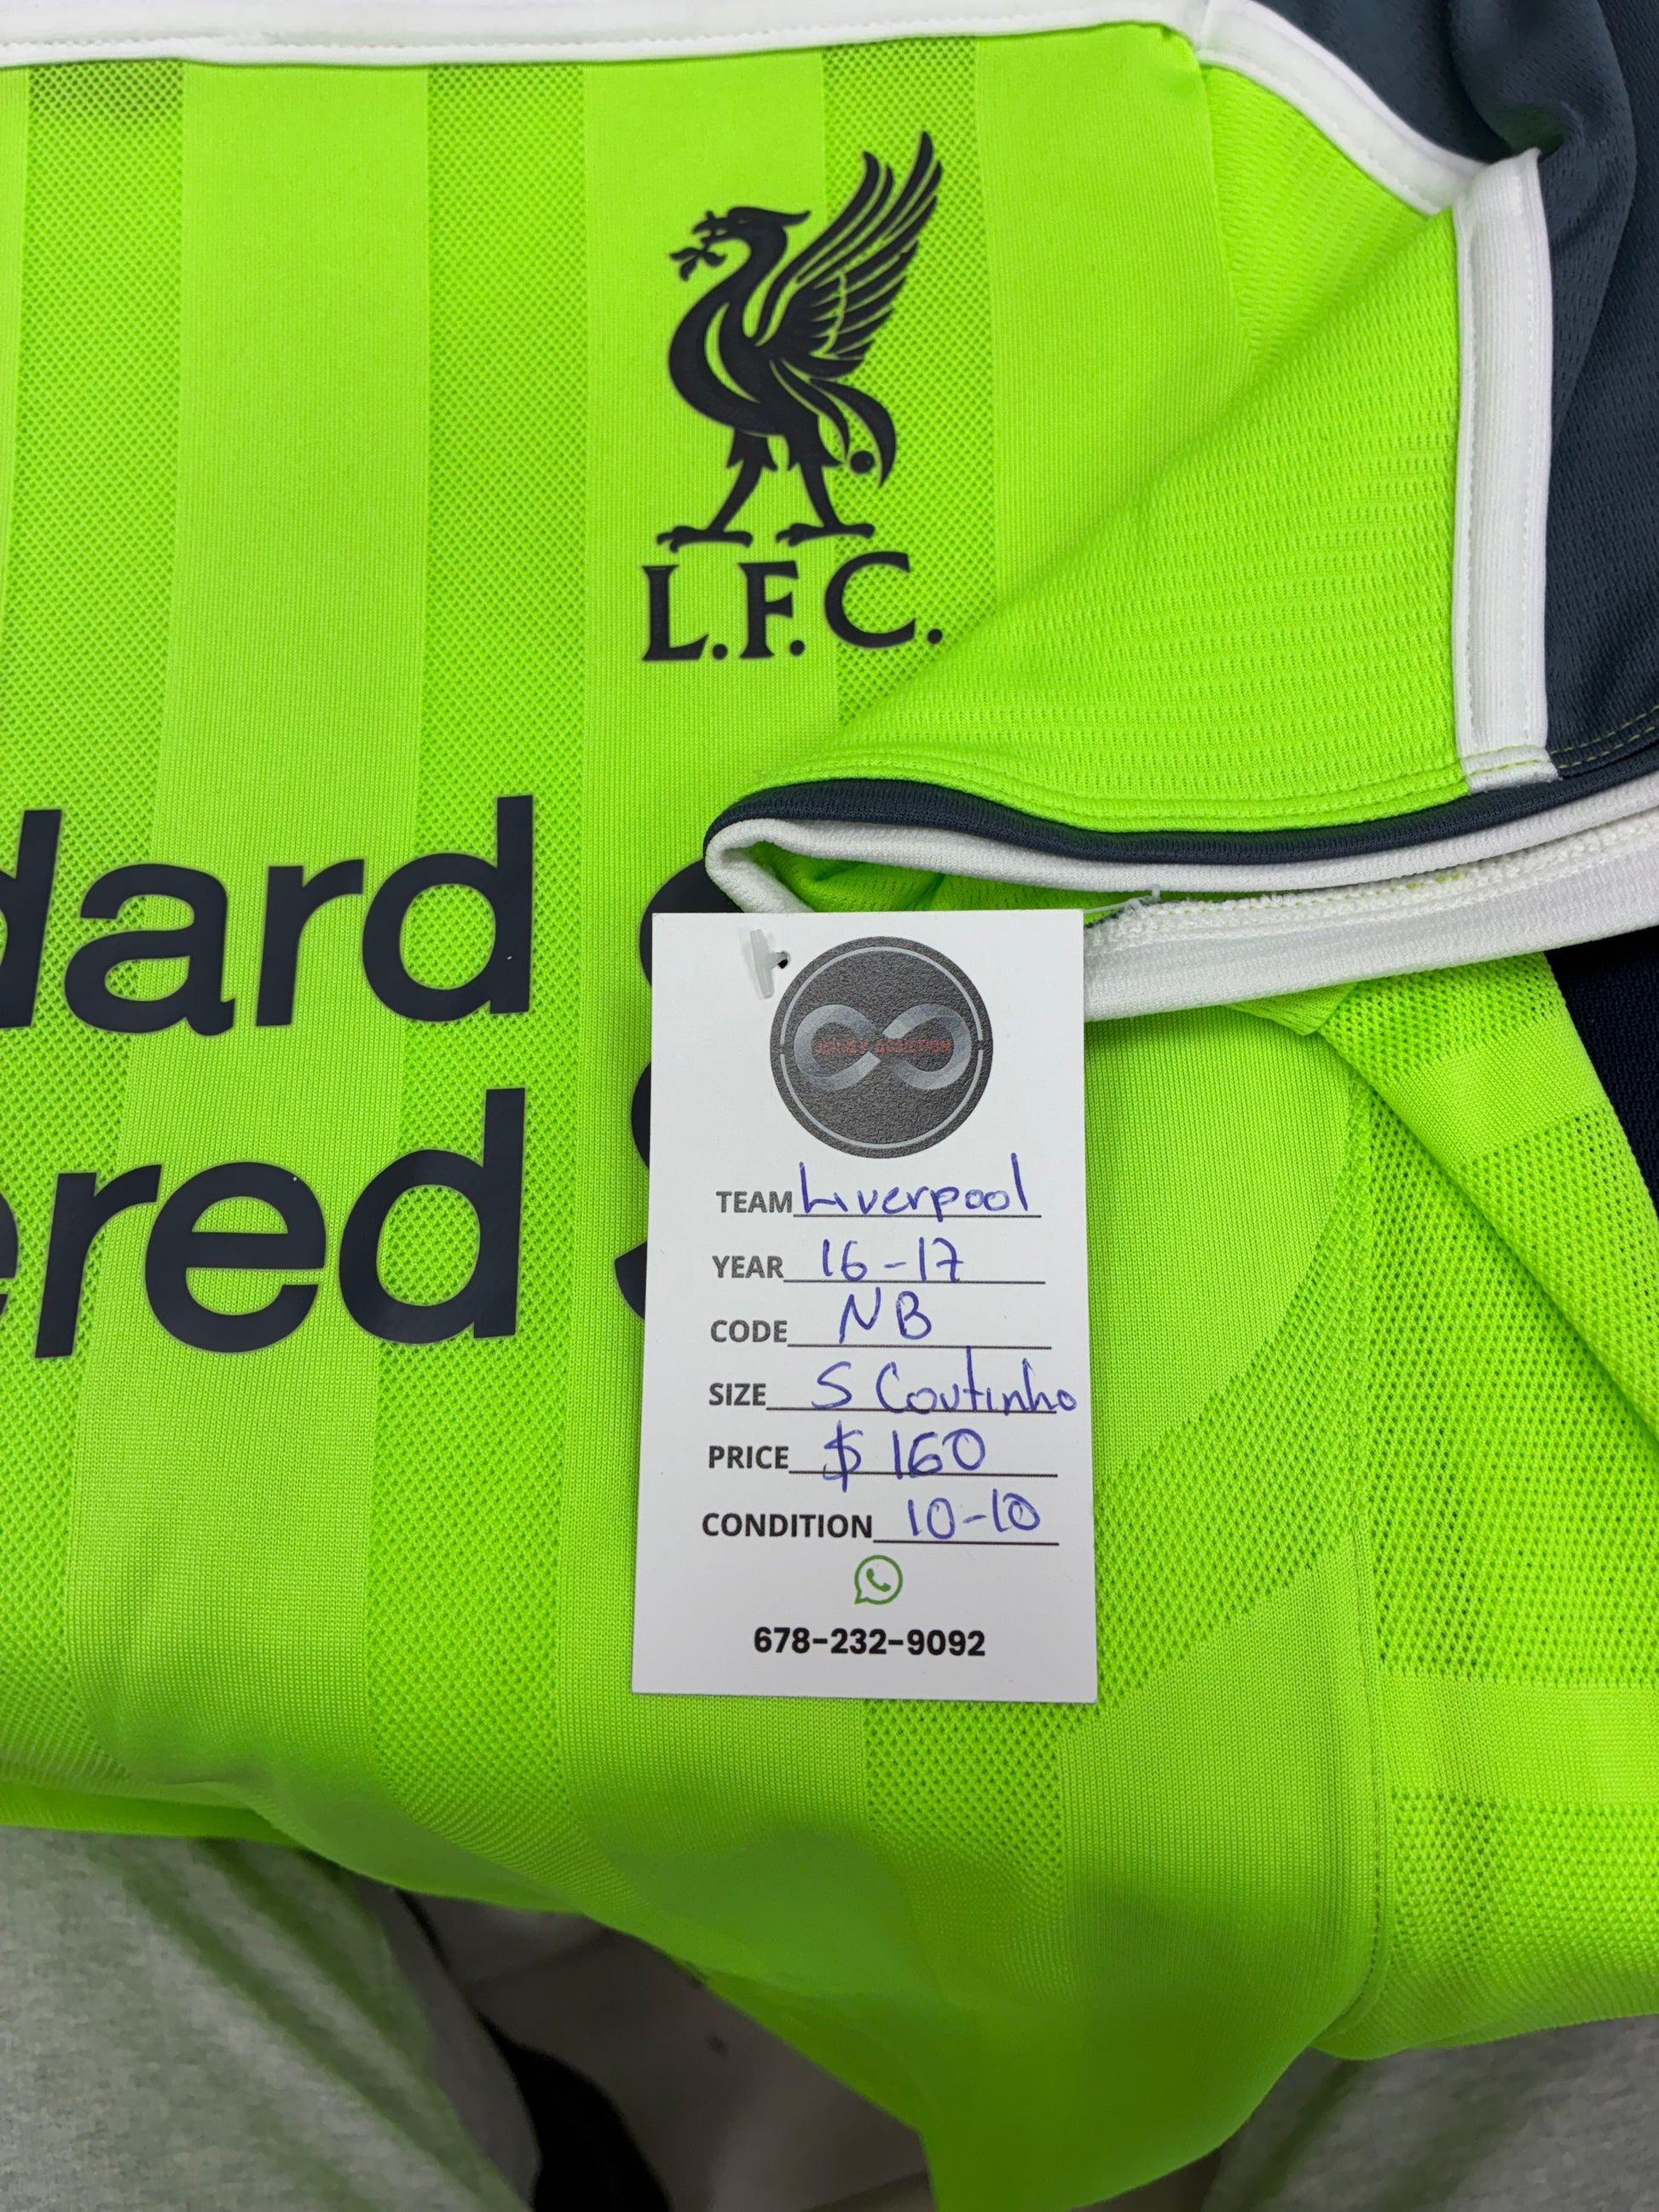 L.F.C.
dard
ered
TEAM Liverpool
YEAR 16-17
CODE NB
SIZE S Coutinho
PRICE $160
CONDITION 10-10
678-232-9092